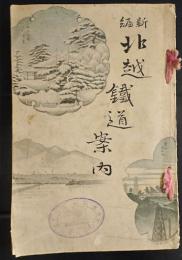 新編
北越鐵道案内